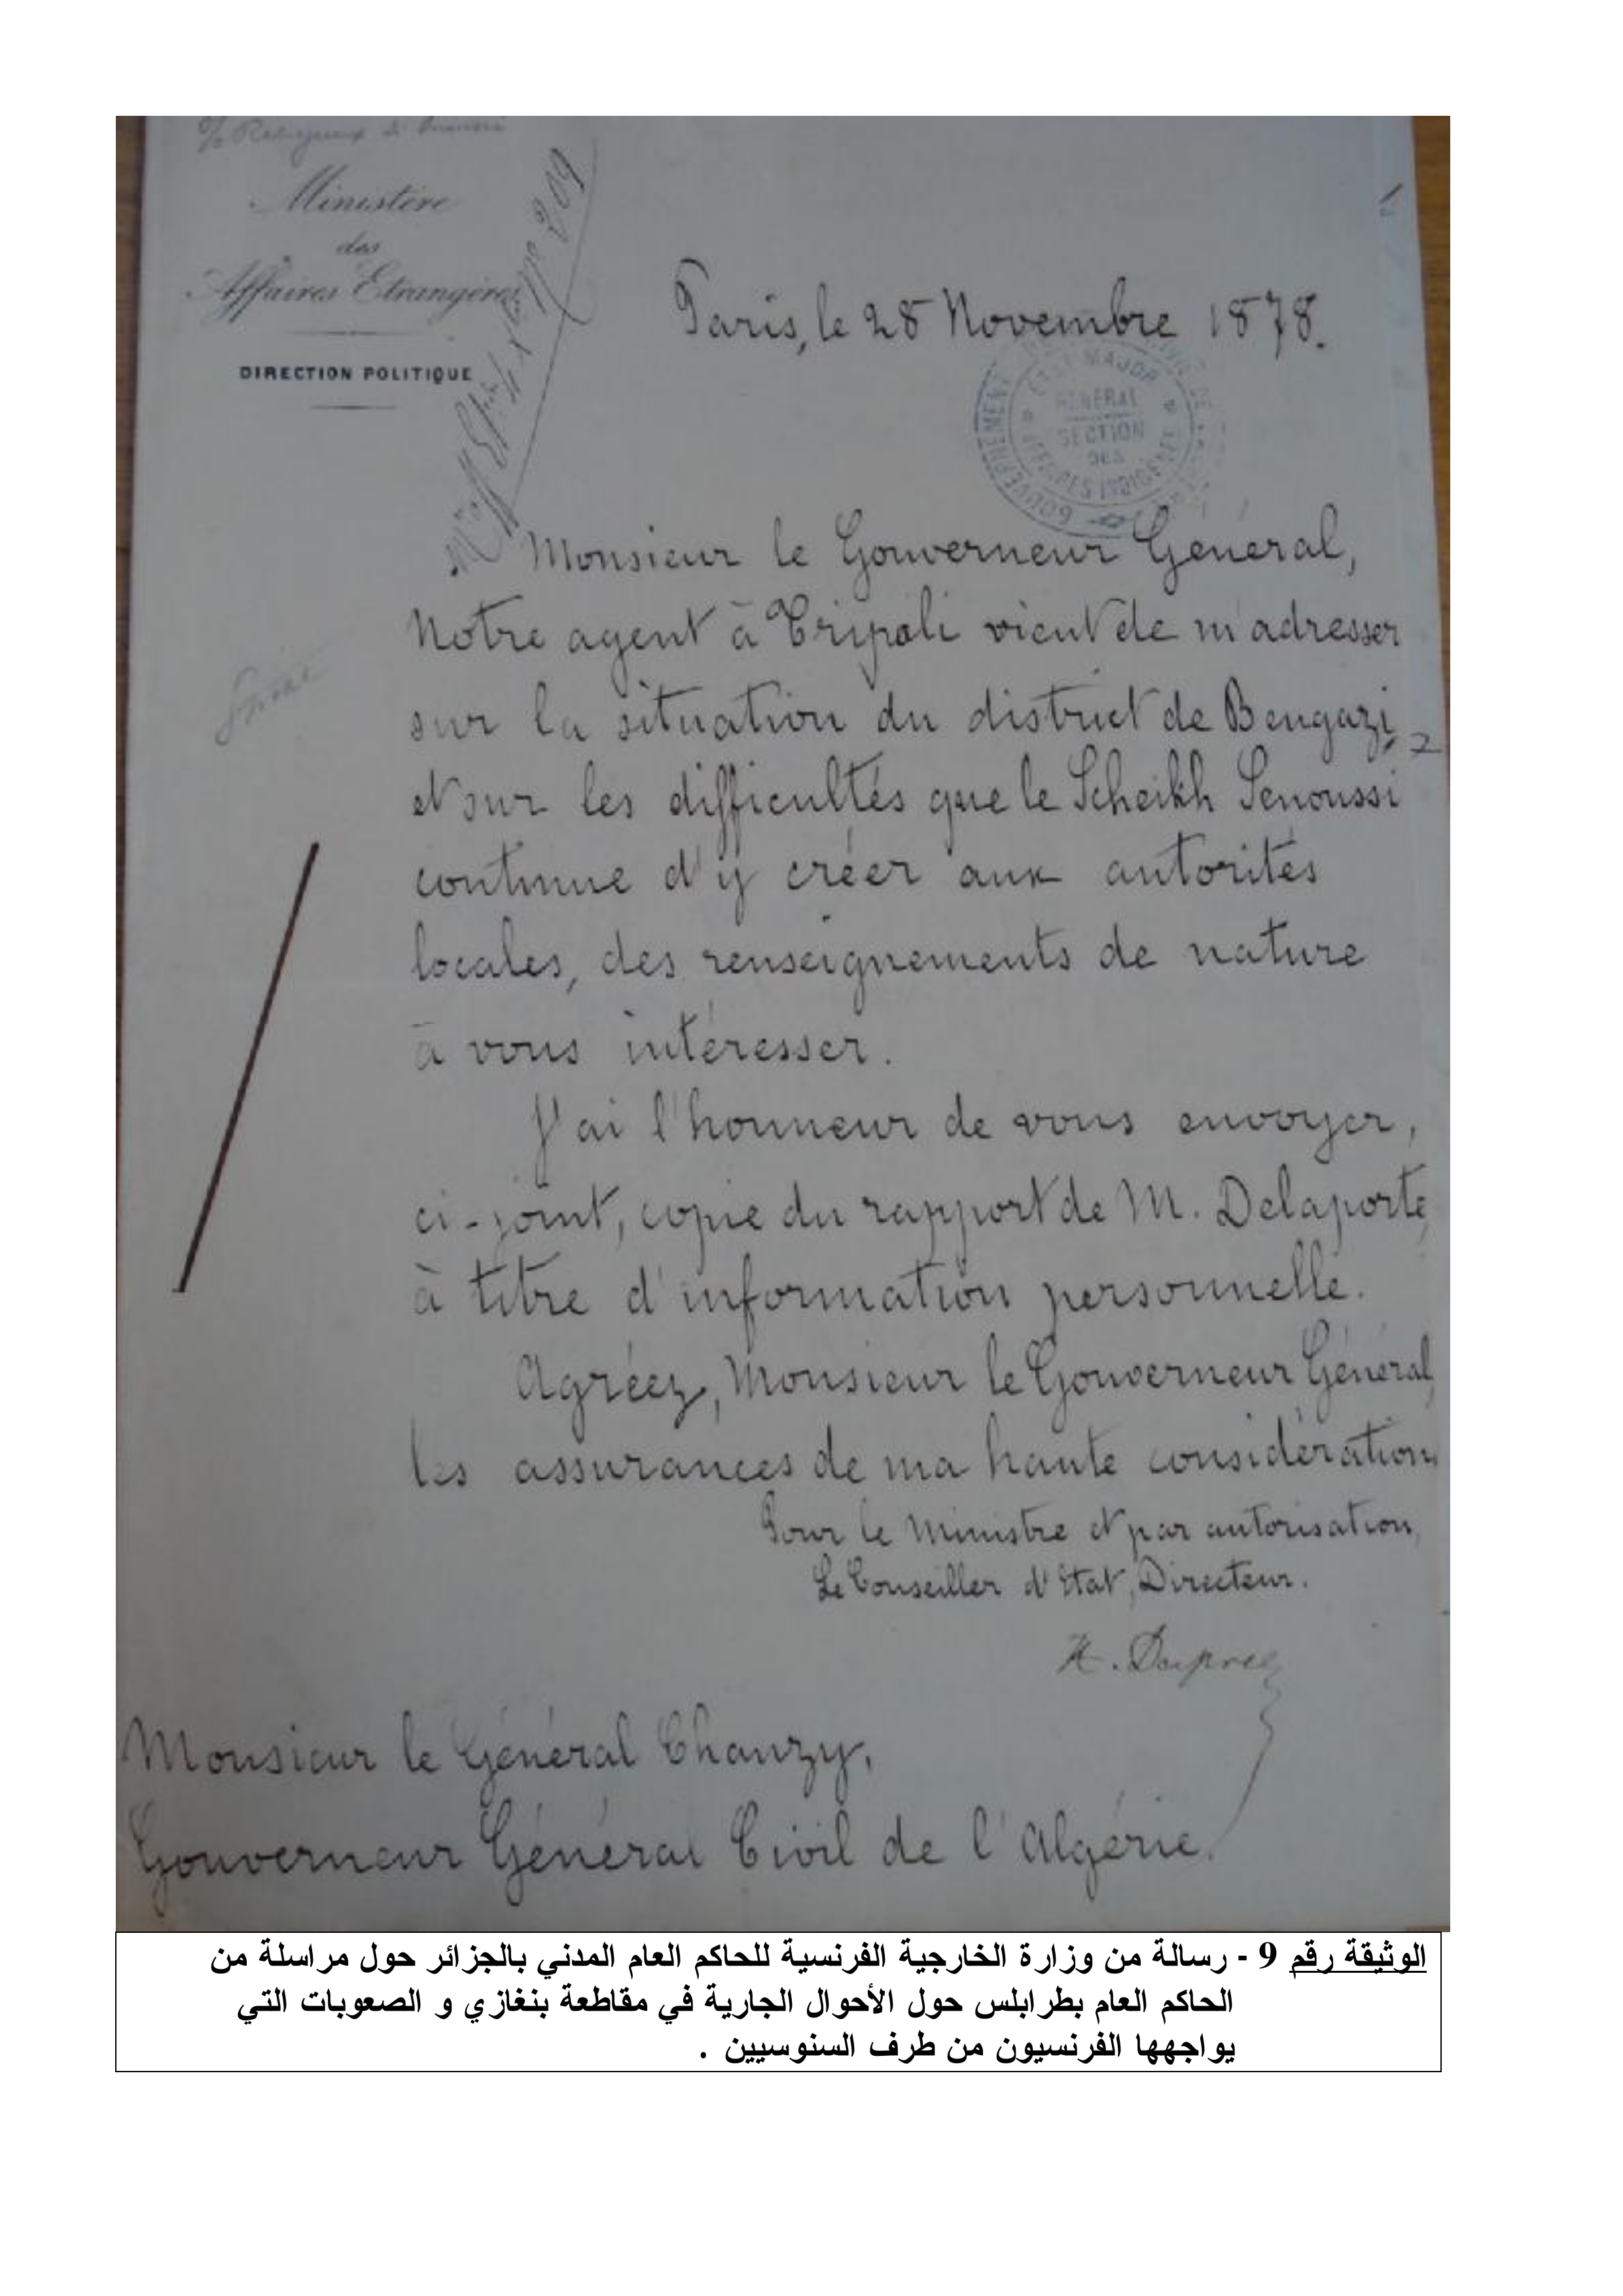 Ministère
des
Affaires Etrangères
DIRECTION POLITIQUE
Nº 209
Paris, le 28 Novembre 1878.
GOUVERNEMENT
ETAT MAJOR
GENERAL
SECTION
DES
AFFAIRES INDIGENES
Monsieur le Gouverneur Général,
Notre agent à Tripoli vient de m'adresser
sur la situation du district de Bengazi,
et sur les difficultés que le Scheikh Senoussi
continue d'y créer aux autorités
locales, des renseignements de nature
à vous intéresser.
J'ai l'honneur de vous envoyer,
ci-joint, copie du rapport de M. Delaporte,
à titre d'information personnelle.
Agréez, Monsieur le Gouverneur Général,
les assurances de ma haute considération.
Pour le Ministre et par autorisation,
Le Conseiller d'Etat, Directeur.
Monsieur le Général Chanzy,
Gouverneur Général Civil de l'Algérie.
الوثيقة رقم 9 - رسالة من وزارة الخارجية الفرنسية للحاكم العام المدني بالجزائر حول مراسلة من
الحاكم العام بطرابلس حول الأحوال الجارية في مقاطعة بنغازي و الصعوبات التي
يواجهها الفرنسيون من طرف السنوسيين .